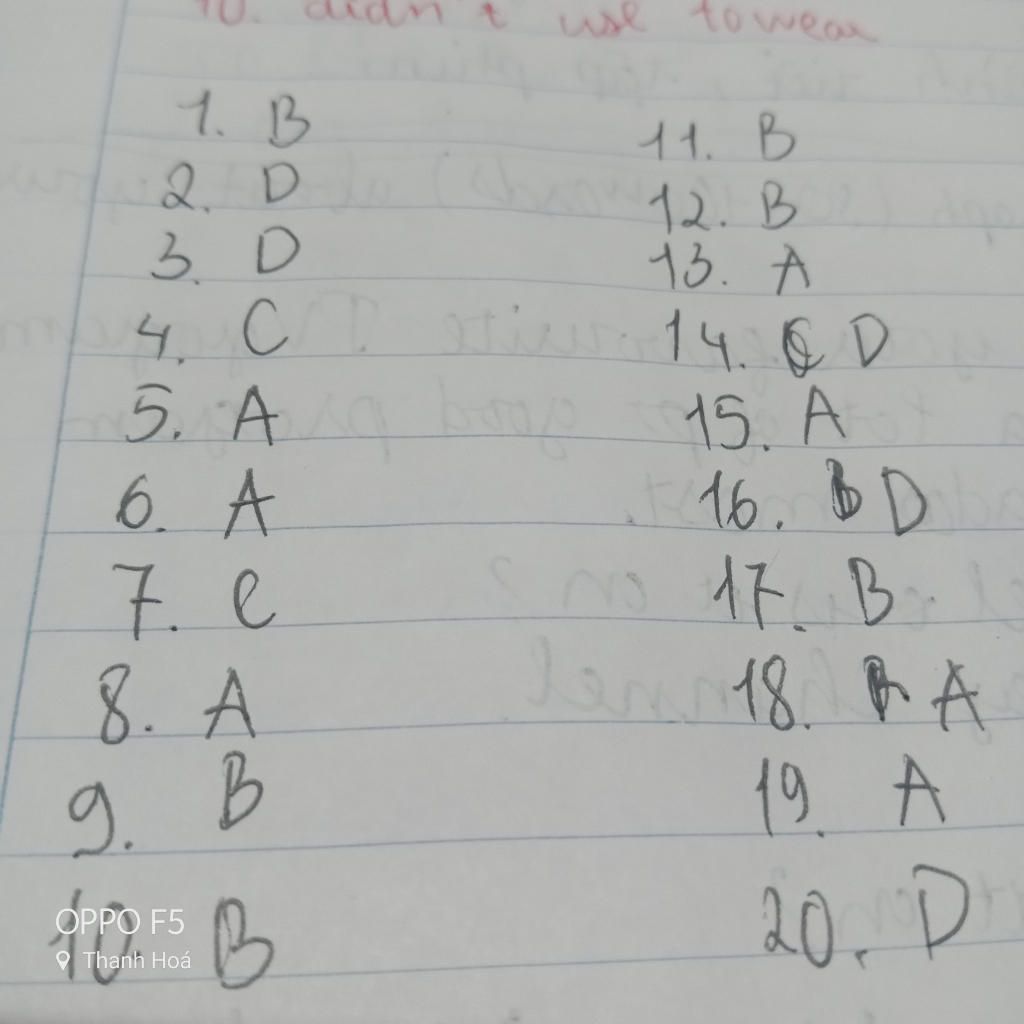 10. didn't use to wear
1. B
2. D
3. D
4. C
5. A
6. A
7. C
8. A
9. B
10. B
11. B
12. B
13. A
14. D
15. A
16. D
17. B
18. A
19. A
20. D
OPPO F5
Thanh Hoá